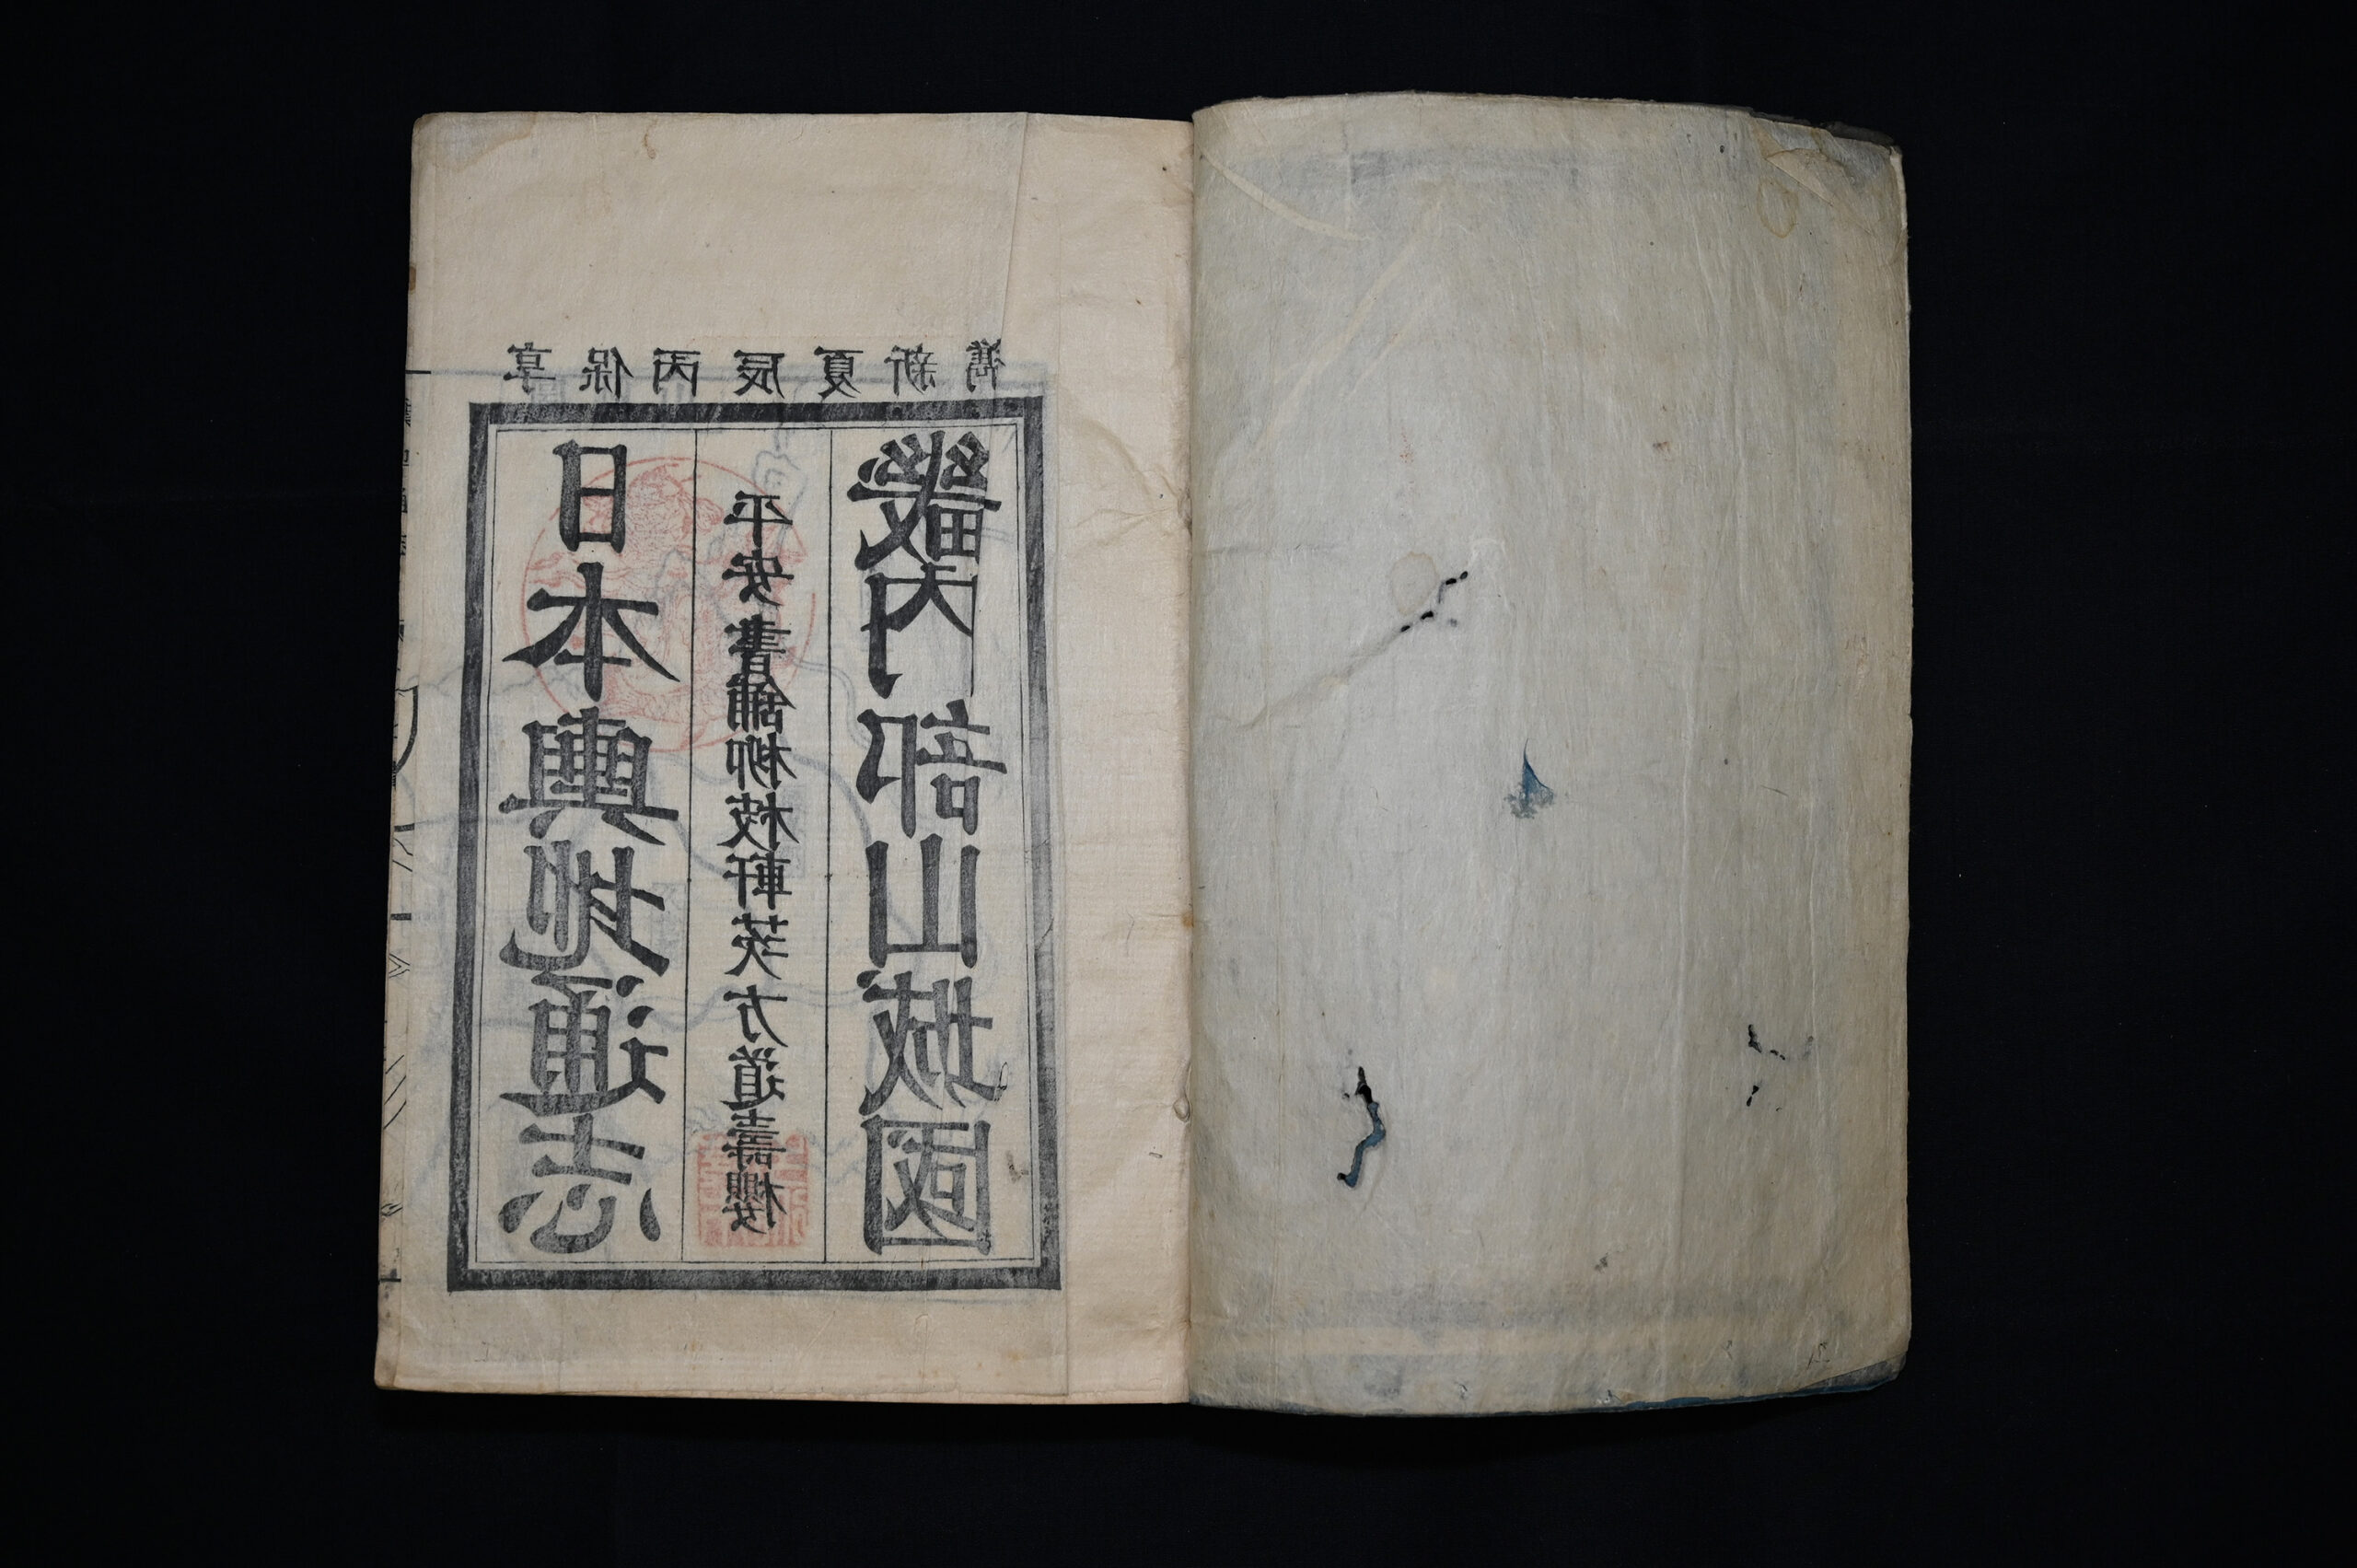 享保丙辰夏新鐫
日本輿地通志
平安書舖柳枝軒茨方道壽櫻
畿内部山城國